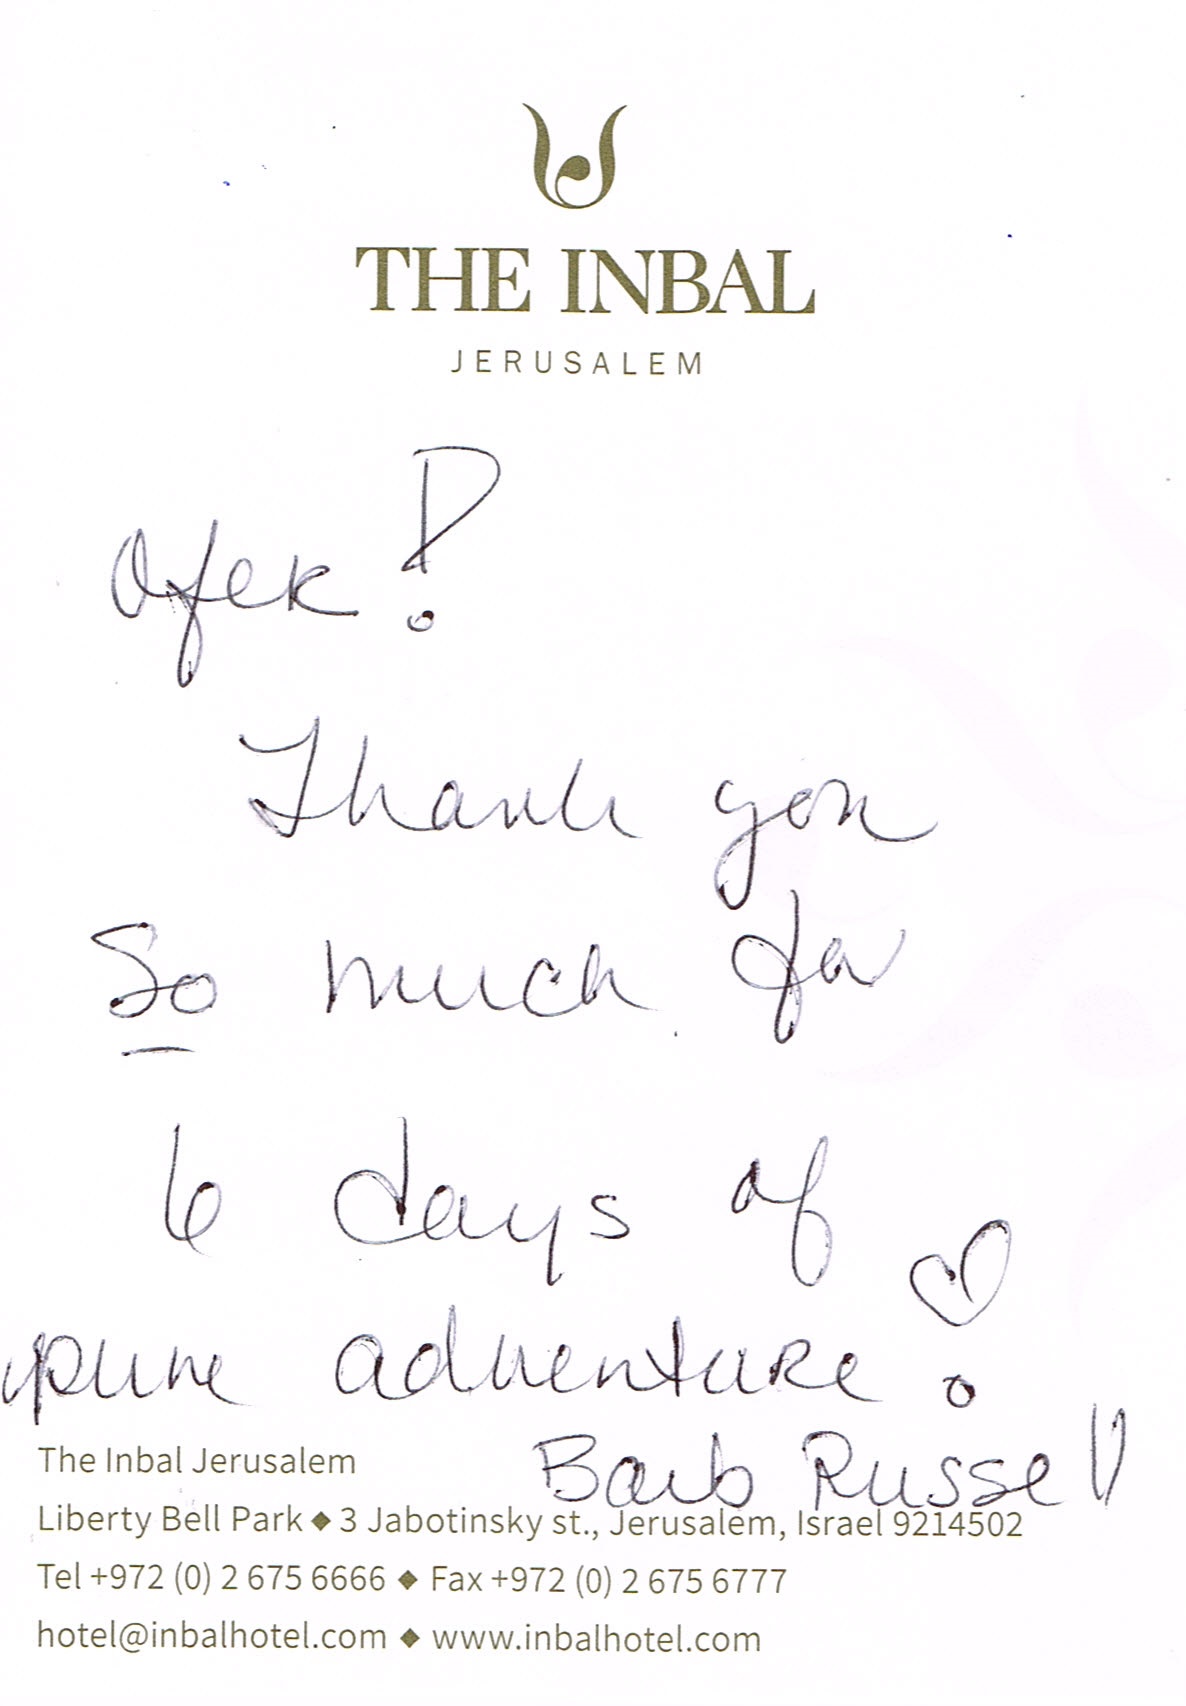 THE INBAL
JERUSALEM
Ofek!
Thank you
So much for
6 days of
pure adventure!
Barb Russell
The Inbal Jerusalem
Liberty Bell Park ◆ 3 Jabotinsky st., Jerusalem, Israel 9214502
Tel +972 (0) 2 675 6666 ◆ Fax +972 (0) 2 675 6777
hotel@inbalhotel.com ◆ www.inbalhotel.com